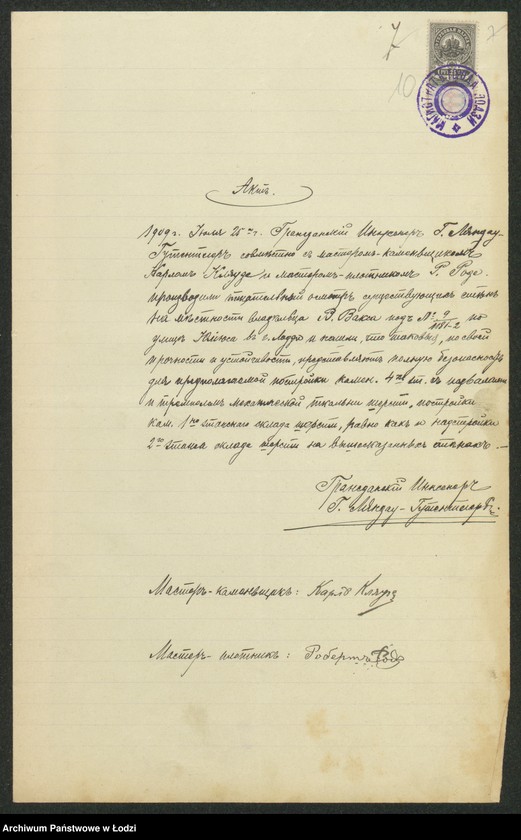 7
10
МАГИСТРАТЪ ГОРОДА ЛОДЗИ
Актъ.
1909 г. Июля 25 го г. Гражданскій Инженеръ Г. Ляндау-
Гутентегеръ совмѣстно съ мастеромъ-каменьщикомъ
Карломъ и мастеромъ-плотникомъ Р. Роде.
производили тщательный осмотръ существующихъ стѣнъ
на мѣстности владѣльца В. Вакса подъ № 9 по
улицѣ въ г. Лодзи и нашли, что таковыя, по своей
прочности и устойчивости, представляютъ полную безопасность
для предполагаемой постройки камен. 4 хъ эт. съ подвалами
и механической ткальни шерсти, постройки
кам. 1 го этажнаго склада шерсти, равно какъ и надстройки
2 го этажа склада шерсти на вышесказанныхъ стѣнахъ. —
Гражданскій Инженеръ
Г. Ляндау-Гутентегеръ.
Мастеръ-каменьщикъ: Карлъ
Мастеръ-плотникъ: Робертъ Роде
Archiwum Państwowe w Łodzi